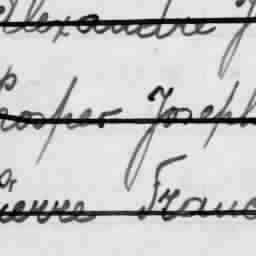 Alexandre J
Prosper Joseph
Pierre Franc